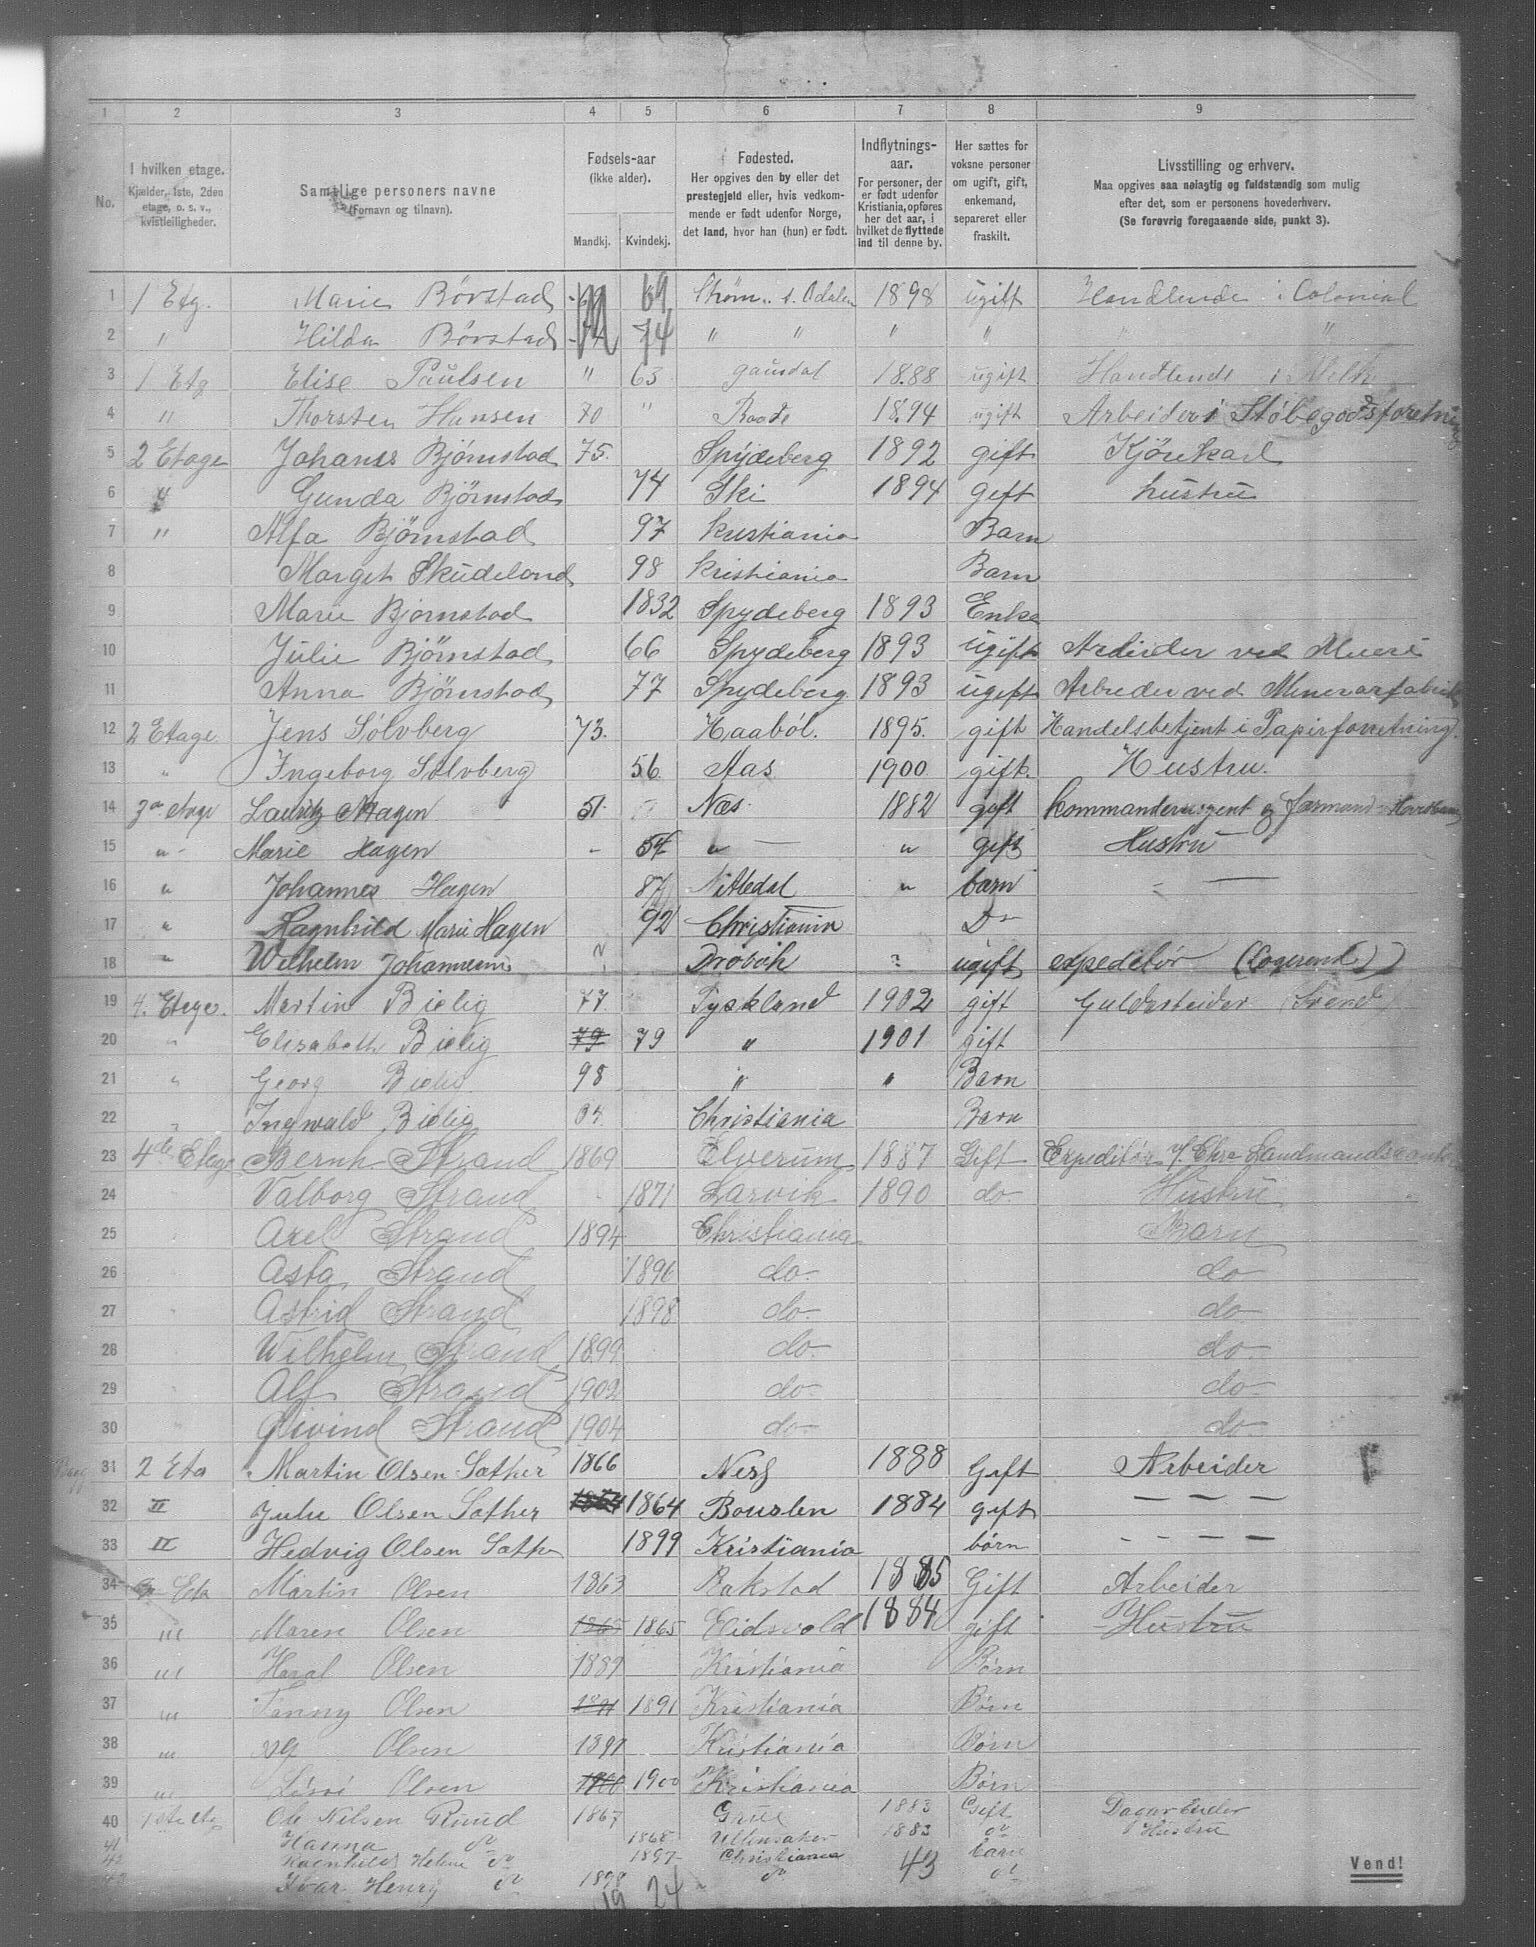 1 2 3 4 5 6 7 8 9
No.
I hvilken etage.
Kjælder, 1ste, 2den
etage, o. s. v.,
kvistleiligheder.
Samtlige personers navne
(Fornavn og tilnavn).
Fødsels-aar
(ikke alder).
Mandkj. Kvindekj.
Fødested.
Her opgives den by eller det
prestegjeld eller, hvis vedkom-
mende er født udenfor Norge,
det land, hvor han (hun) er født.
Indflytnings-
aar.
For personer, der
er født udenfor
Kristiania, opføres
her det aar, i
hvilket de flyttede
ind til denne by.
Her sættes for
voksne personer
om ugift, gift,
enkemand,
separeret eller
fraskilt.
Livsstilling og erhverv.
Maa opgives saa nøiagtig og fuldstændig som mulig
efter det, som er personens hovederhverv.
(Se forøvrig foregaaende side, punkt 3).
1 1 Etg. Marie Børstad 69 Strøm s. Odalen 1898 ugift Handlende i Colonial
2 " Hilda Børstad 74 " " " " " "
3 1 Etg Elise Paulsen " 63 Gausdal 1888 ugift Handlende i Melk
4 " Thorsten Hansen 70 " Raade 1894 ugift Arbeider i Støbegodsforetning
5 2 Etage Johanes Bjørnstad 75. Spydeberg 1892 gift Kjørekarl
6 " Gunda Bjørnstad 74 Ski 1894 gift hustru
7 " Alfa Bjørnstad 97 Kristiania Barn
8 Marget Skudeland 98 Kristiania Barn
9 Marie Bjørnstad 1832 Spydeberg 1893 Enke
10 Julie Bjørnstad 66 Spydeberg 1893 ugift Arbeider ved
11 Anna Bjørnstad 77 Spydeberg 1893 ugift Arbeider ved
12 2 Etage Jens Sølvberg 73. Haabøl. 1895. gift Handelsbetjent i Papirforretning.
13 " Ingeborg Sølvberg 56 Aas 1900 gift. Hustru.
14 3die Etage Lauritz Hagen 51 Næs. 1882 gift
15 " - Marie Hagen - 54 " — " gift Hustru
16 " Johannes Hagen 87 Nittedal " barn " —
17 " Ragnhild Marie Hagen 92 Christiania Do
18 " Wilhelm Johannesen ? Drøbak ? ugift expeditør (Logerende)
19 4. Etage. Martin Bielig 77. Tyskland 1902 gift Guldarbeider (Svend)
20 " Elisabeth Bielig 79 79 " 1901 gift
21 " Georg Bielig 98 " " Barn
22 " Ingwald Bielig 04. Christiania Barn
23 4de Etage Bernh Strand 1869 Elverum 1887 Gift Expeditør
24 Valborg Strand - 1871 Larvik 1890 do. Hustru
25 " Axel Strand 1894 Christiania Barn
26 " Asta Strand 1896 do- do
27 " Astrid Strand 1898 do- do
28 " Wilhelm Strand 1899 do- do
29 " Alf Strand 1902 do- do-
30 " Øivind Strand 1904 do- do
31 2 Eta Martin Olsen Sæther 1866 Nes 1888 Gift Arbeider
32 II Julie Olsen Sæther 1864 1864 1884 gift — — —
33 II Hedvig Olsen Sæth 1899 Kristiania børn - - — —
34 Eta Martin Olsen 1863 Rakstad 1885 Gift Arbeider
35 III Maren Olsen 1865 1865 Eidsvold 1884 gift Hustru
36 III Haral Olsen 1889 Kristiania Børn
37 III Fanny Olsen 1891 1891 Kristiania Børn
38 III Olsen 1897 Kristiania Børn
39 III Olsen 1900 1900 Kristiania Børn
40 1ste etg Ole Nilsen Ruud 1867 Grue 1883 Gift Dagarbeider
41 Hanna do 1868 Ullensaker 1883 do Hustru
42 Ragnhild Helene do 1897 Christiania barn
43 Ivar Henry do 1898 do do
19 24 43
Vend!